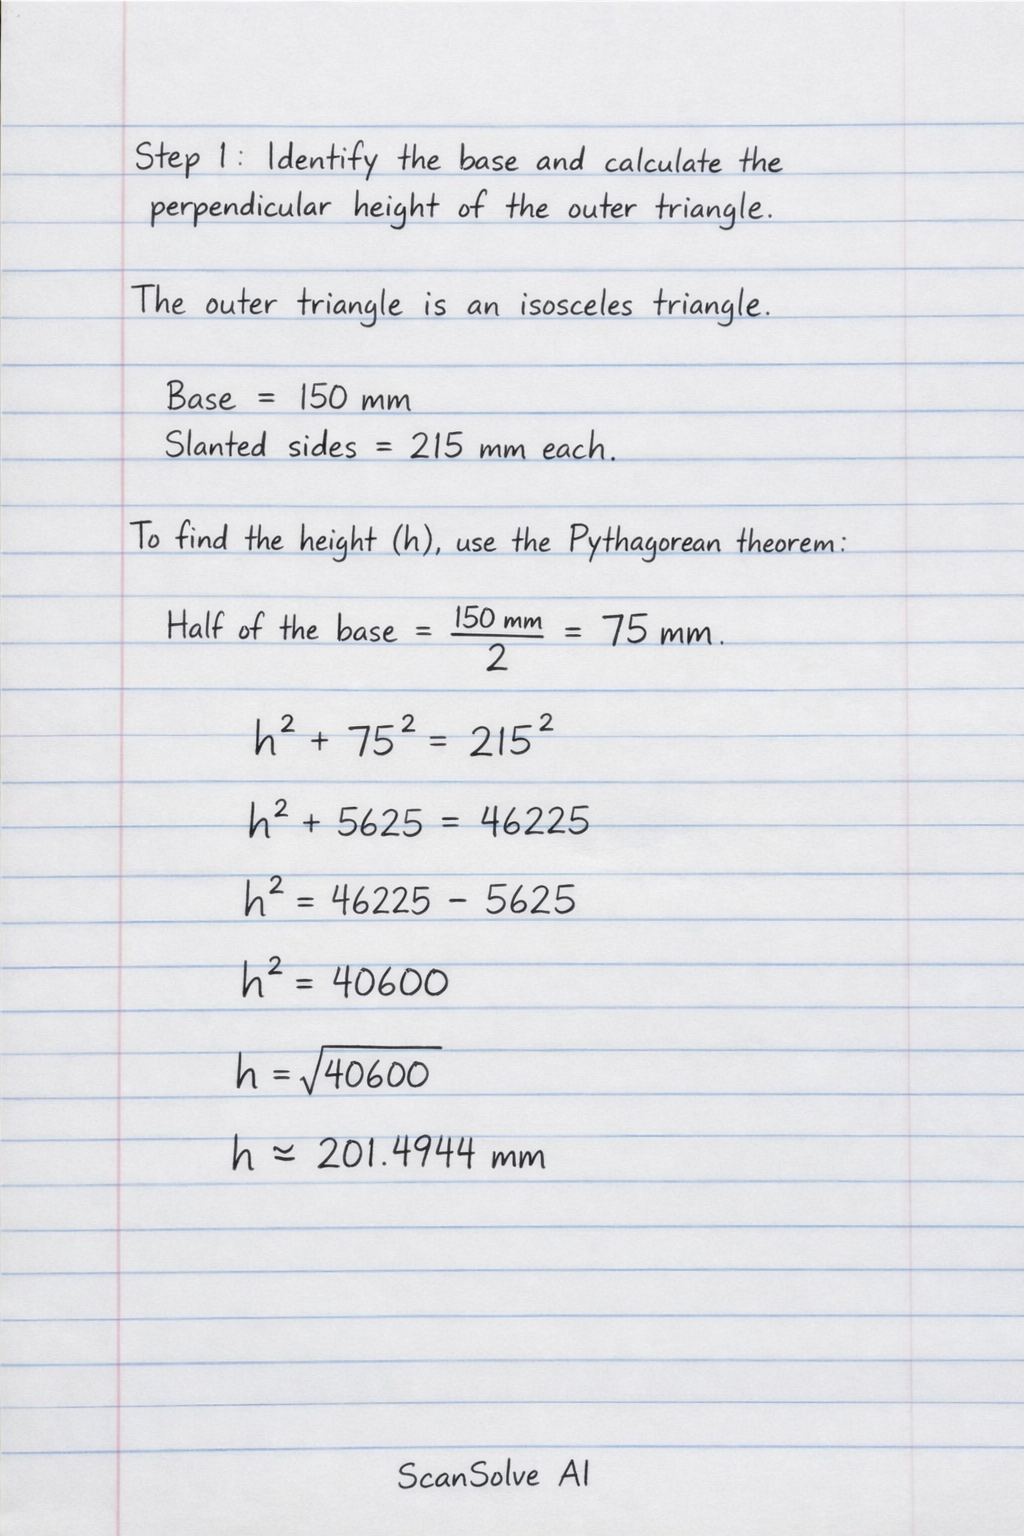 Step 1: Identify the base and calculate the
perpendicular height of the outer triangle.
The outer triangle is an isosceles triangle.
Base = 150 mm
Slanted sides = 215 mm each.
To find the height (h), use the Pythagorean theorem:
Half of the base = 150 mm / 2 = 75 mm.
h² + 75² = 215²
h² + 5625 = 46225
h² = 46225 - 5625
h² = 40600
h = √40600
h ≈ 201.4944 mm
ScanSolve AI